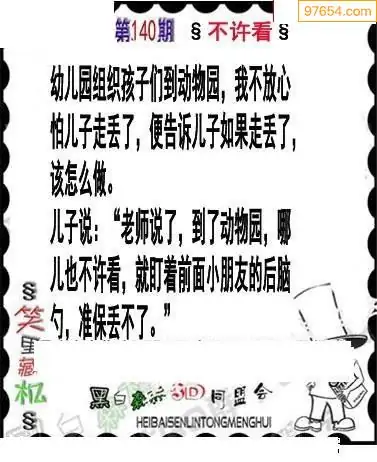 97654.com
第140期 §不许看§
幼儿园组织孩子们到动物园，我不放心
怕儿子走丢了，便告诉儿子如果走丢了，
该怎么做。
儿子说：“老师说了，到了动物园，哪
儿也不许看，就盯着前面小朋友的后脑
勺，准保丢不了。”
§笑里藏机§
黑白森林3D同盟会
HEIBAISENLINTONGMENGHUI